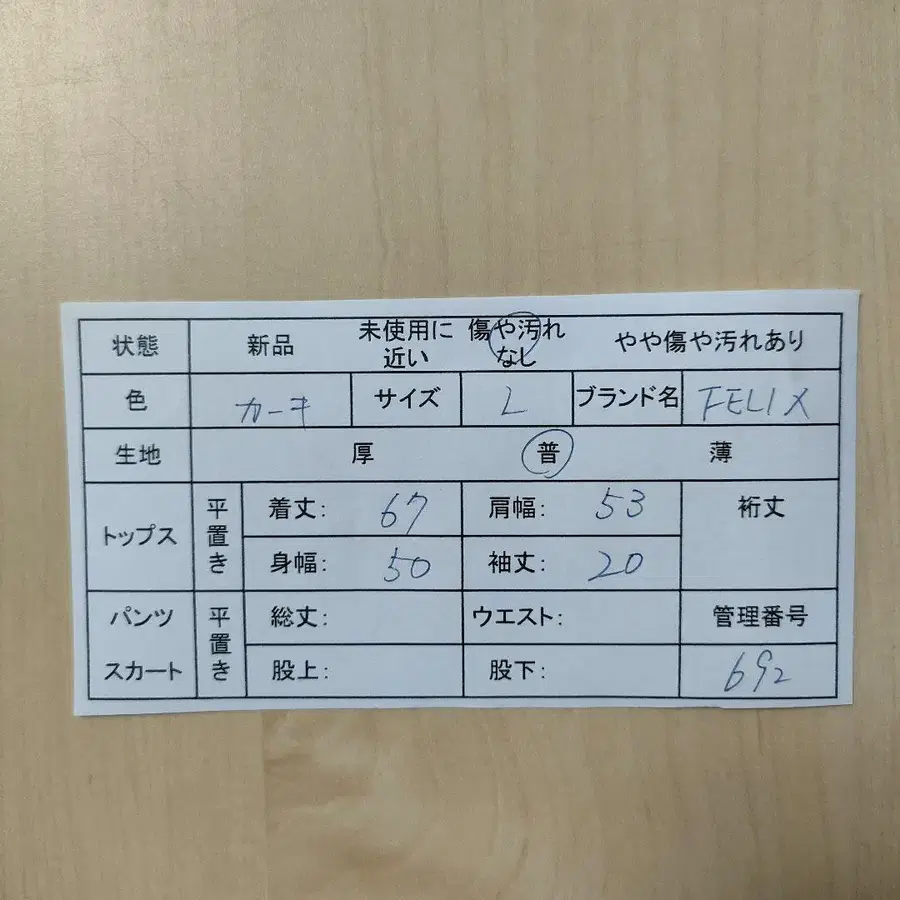 状態 新品 未使用に近い 傷や汚れなし やや傷や汚れあり
色 カーキ サイズ L ブランド名 FELIX
生地 厚 普 薄
トップス 平置き 着丈: 67 肩幅: 53 裄丈
身幅: 50 袖丈: 20
パンツ スカート 平置き 総丈: ウエスト: 管理番号
股上: 股下: 692